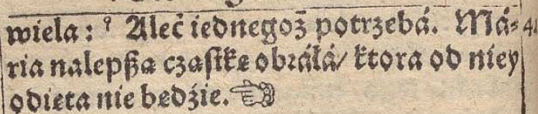 wiela: ⁹ Aleć iednegoż potrzebá. Má⸗ 41
ria nalepßa cząſtkę obráłá/ ktora od niey
odięta nie będźie. ☜